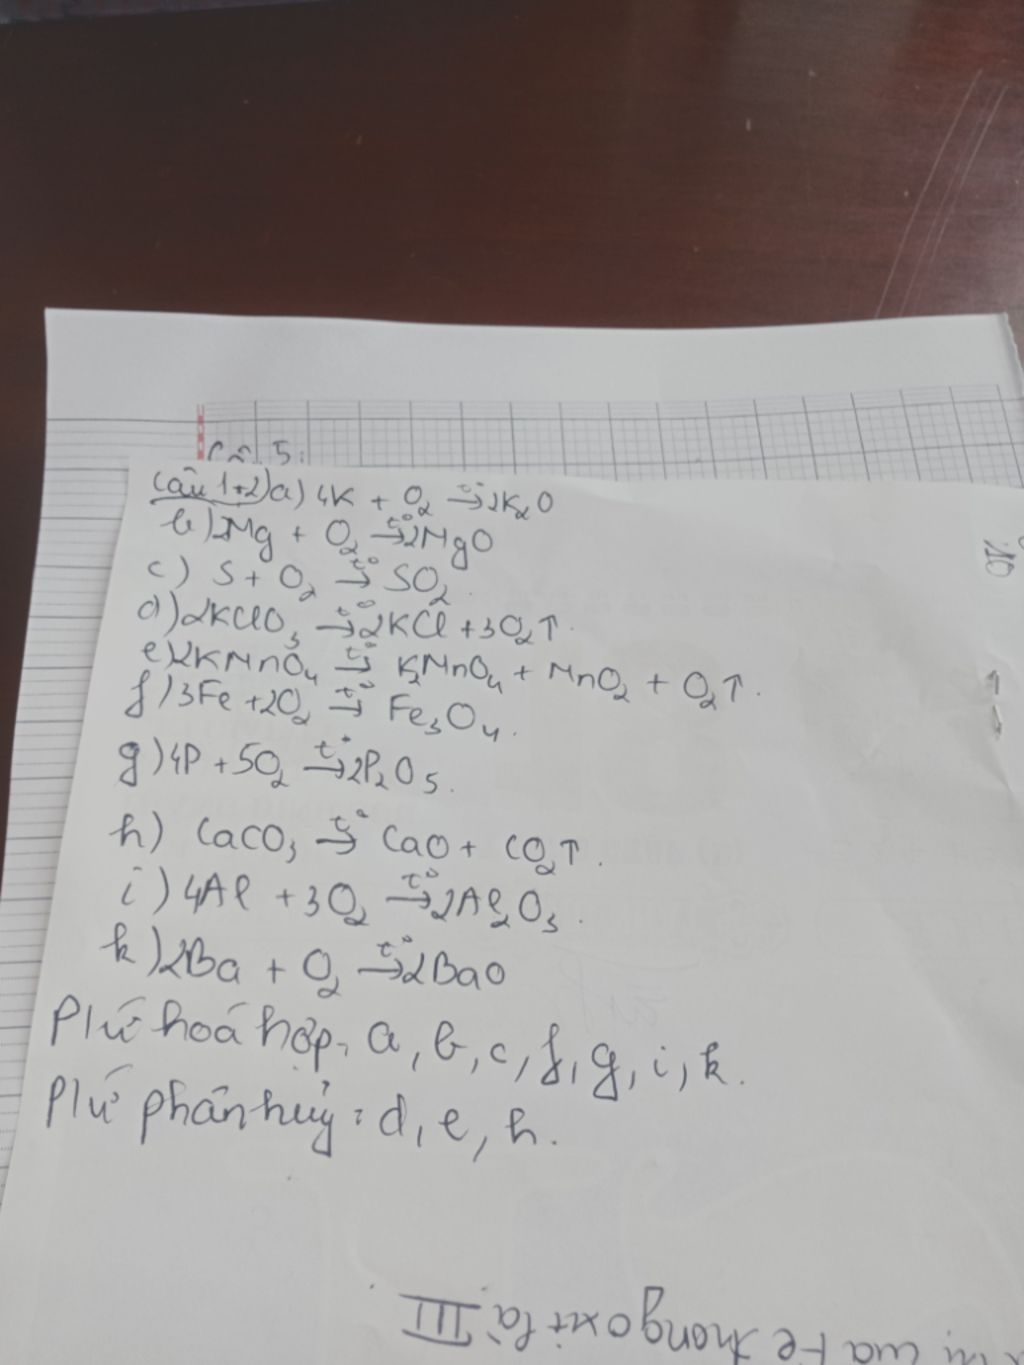 5:
Câu 1+2) a) 4K + O₂ →t° 2K₂O
b) 2Mg + O₂ →t° 2MgO
c) S + O₂ →t° SO₂.
d) 2KClO₃ →t° 2KCl + 3O₂↑.
e) 2KMnO₄ →t° K₂MnO₄ + MnO₂ + O₂↑.
f) 3Fe + 2O₂ →t° Fe₃O₄.
g) 4P + 5O₂ →t° 2P₂O₅.
h) CaCO₃ →t° CaO + CO₂↑.
i) 4Al + 3O₂ →t° 2Al₂O₃.
k) 2Ba + O₂ →t° 2BaO
Pứ hoá hợp: a, b, c, f, g, i, k.
Pứ phân huỷ: d, e, h.
của Fe trong oxit là III